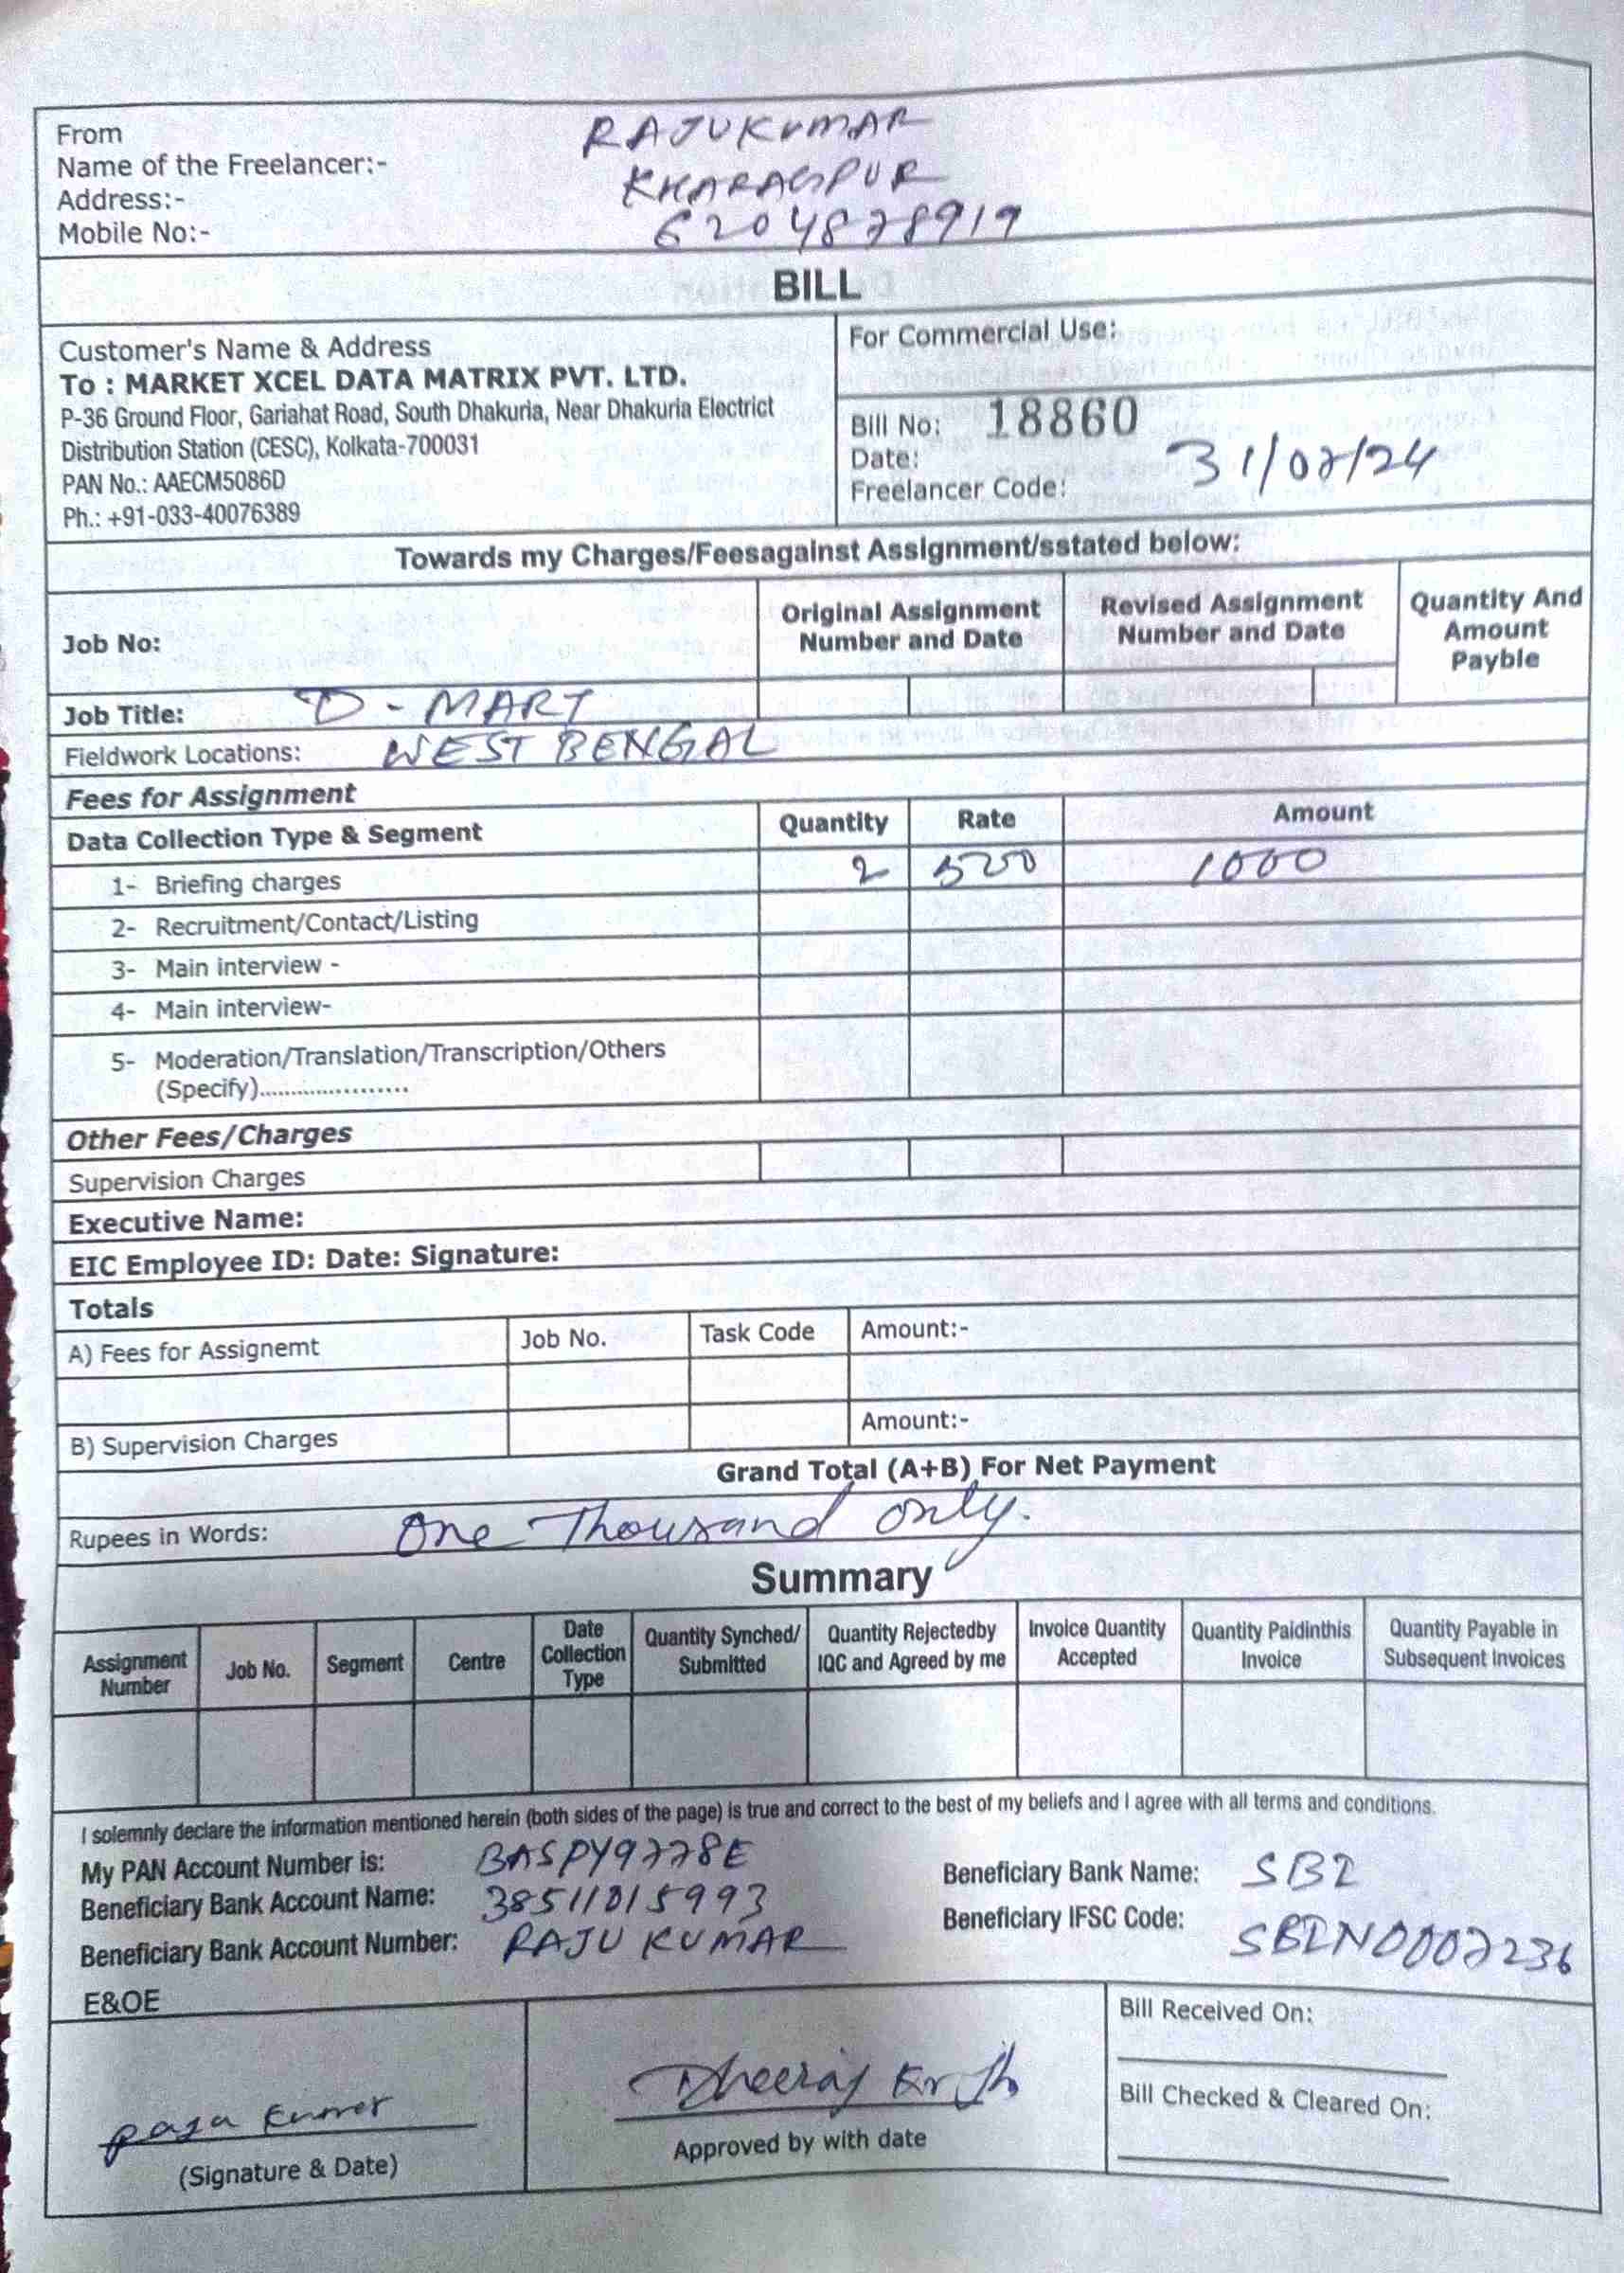 From
Name of the Freelancer:- RAJU KUMAR
Address:- KHARAGPUR
Mobile No:- 6204878919
BILL
Customer's Name & Address
To : MARKET XCEL DATA MATRIX PVT. LTD.
P-36 Ground Floor, Gariahat Road, South Dhakuria, Near Dhakuria Electrict
Distribution Station (CESC), Kolkata-700031
PAN No.: AAECM5086D
Ph.: +91-033-40076389
For Commercial Use:
Bill No: 18860
Date: 31/07/24
Freelancer Code:
Towards my Charges/Feesagainst Assignment/sstated below:
Job No: Original Assignment Number and Date Revised Assignment Number and Date Quantity And Amount Payble
Job Title: D - MART
Fieldwork Locations: WEST BENGAL
Fees for Assignment
Data Collection Type & Segment Quantity Rate Amount
1- Briefing charges 2 500 1000
2- Recruitment/Contact/Listing
3- Main interview -
4- Main interview-
5- Moderation/Translation/Transcription/Others
(Specify).....................
Other Fees/Charges
Supervision Charges
Executive Name:
EIC Employee ID: Date: Signature:
Totals
A) Fees for Assignemt Job No. Task Code Amount:-
B) Supervision Charges Amount:-
Grand Total (A+B) For Net Payment
Rupees in Words: One Thousand only.
Summary
Assignment Number Job No. Segment Centre Date Collection Type Quantity Synched/ Submitted Quantity Rejectedby IQC and Agreed by me Invoice Quantity Accepted Quantity Paidinthis Invoice Quantity Payable in Subsequent Invoices
I solemnly declare the information mentioned herein (both sides of the page) is true and correct to the best of my beliefs and I agree with all terms and conditions.
My PAN Account Number is: BASPY9778E
Beneficiary Bank Account Name: 38511015993
Beneficiary Bank Account Number: RAJU KUMAR
Beneficiary Bank Name: SBI
Beneficiary IFSC Code: SBIN0007236
E&OE
raja kumar
(Signature & Date)
Dheeraj Kr
Approved by with date
Bill Received On:
Bill Checked & Cleared On: